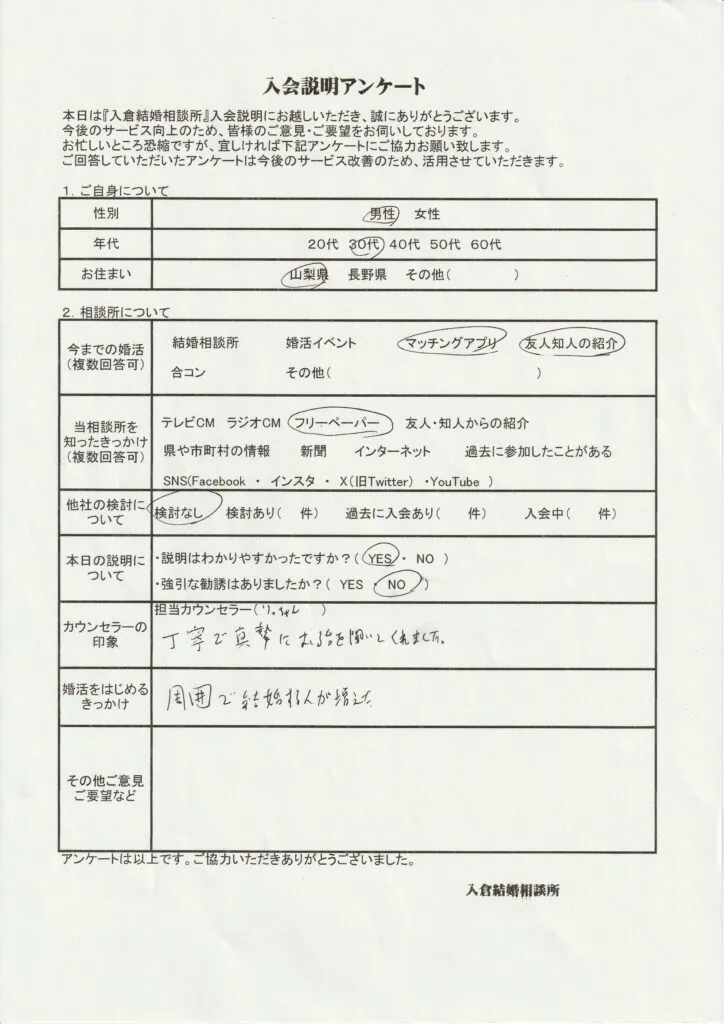 入会説明アンケート
本日は『入倉結婚相談所』入会説明にお越しいただき、誠にありがとうございます。
今後のサービス向上のため、皆様のご意見・ご要望をお伺いしております。
お忙しいところ恐縮ですが、宜しければ下記アンケートにご協力お願い致します。
ご回答していただいたアンケートは今後のサービス改善のため、活用させていただきます。
1. ご自身について
性別 男性 女性
年代 20代 30代 40代 50代 60代
お住まい 山梨県 長野県 その他( )
2. 相談所について
今までの婚活
(複数回答可)
結婚相談所 婚活イベント マッチングアプリ 友人知人の紹介
合コン その他( )
当相談所を
知ったきっかけ
(複数回答可)
テレビCM ラジオCM フリーペーパー 友人・知人からの紹介
県や市町村の情報 新聞 インターネット 過去に参加したことがある
SNS(Facebook ・ インスタ ・ X(旧Twitter) ・YouTube )
他社の検討に
ついて
検討なし 検討あり( 件) 過去に入会あり( 件) 入会中( 件)
本日の説明に
ついて
・説明はわかりやすかったですか?( YES ・ NO )
・強引な勧誘はありましたか?( YES ・ NO )
カウンセラーの
印象
担当カウンセラー( )
丁寧で真摯にお話を聞いてくれました。
婚活をはじめる
きっかけ
周囲で結婚する人が増えた
その他ご意見
ご要望など
アンケートは以上です。ご協力いただきありがとうございました。
入倉結婚相談所